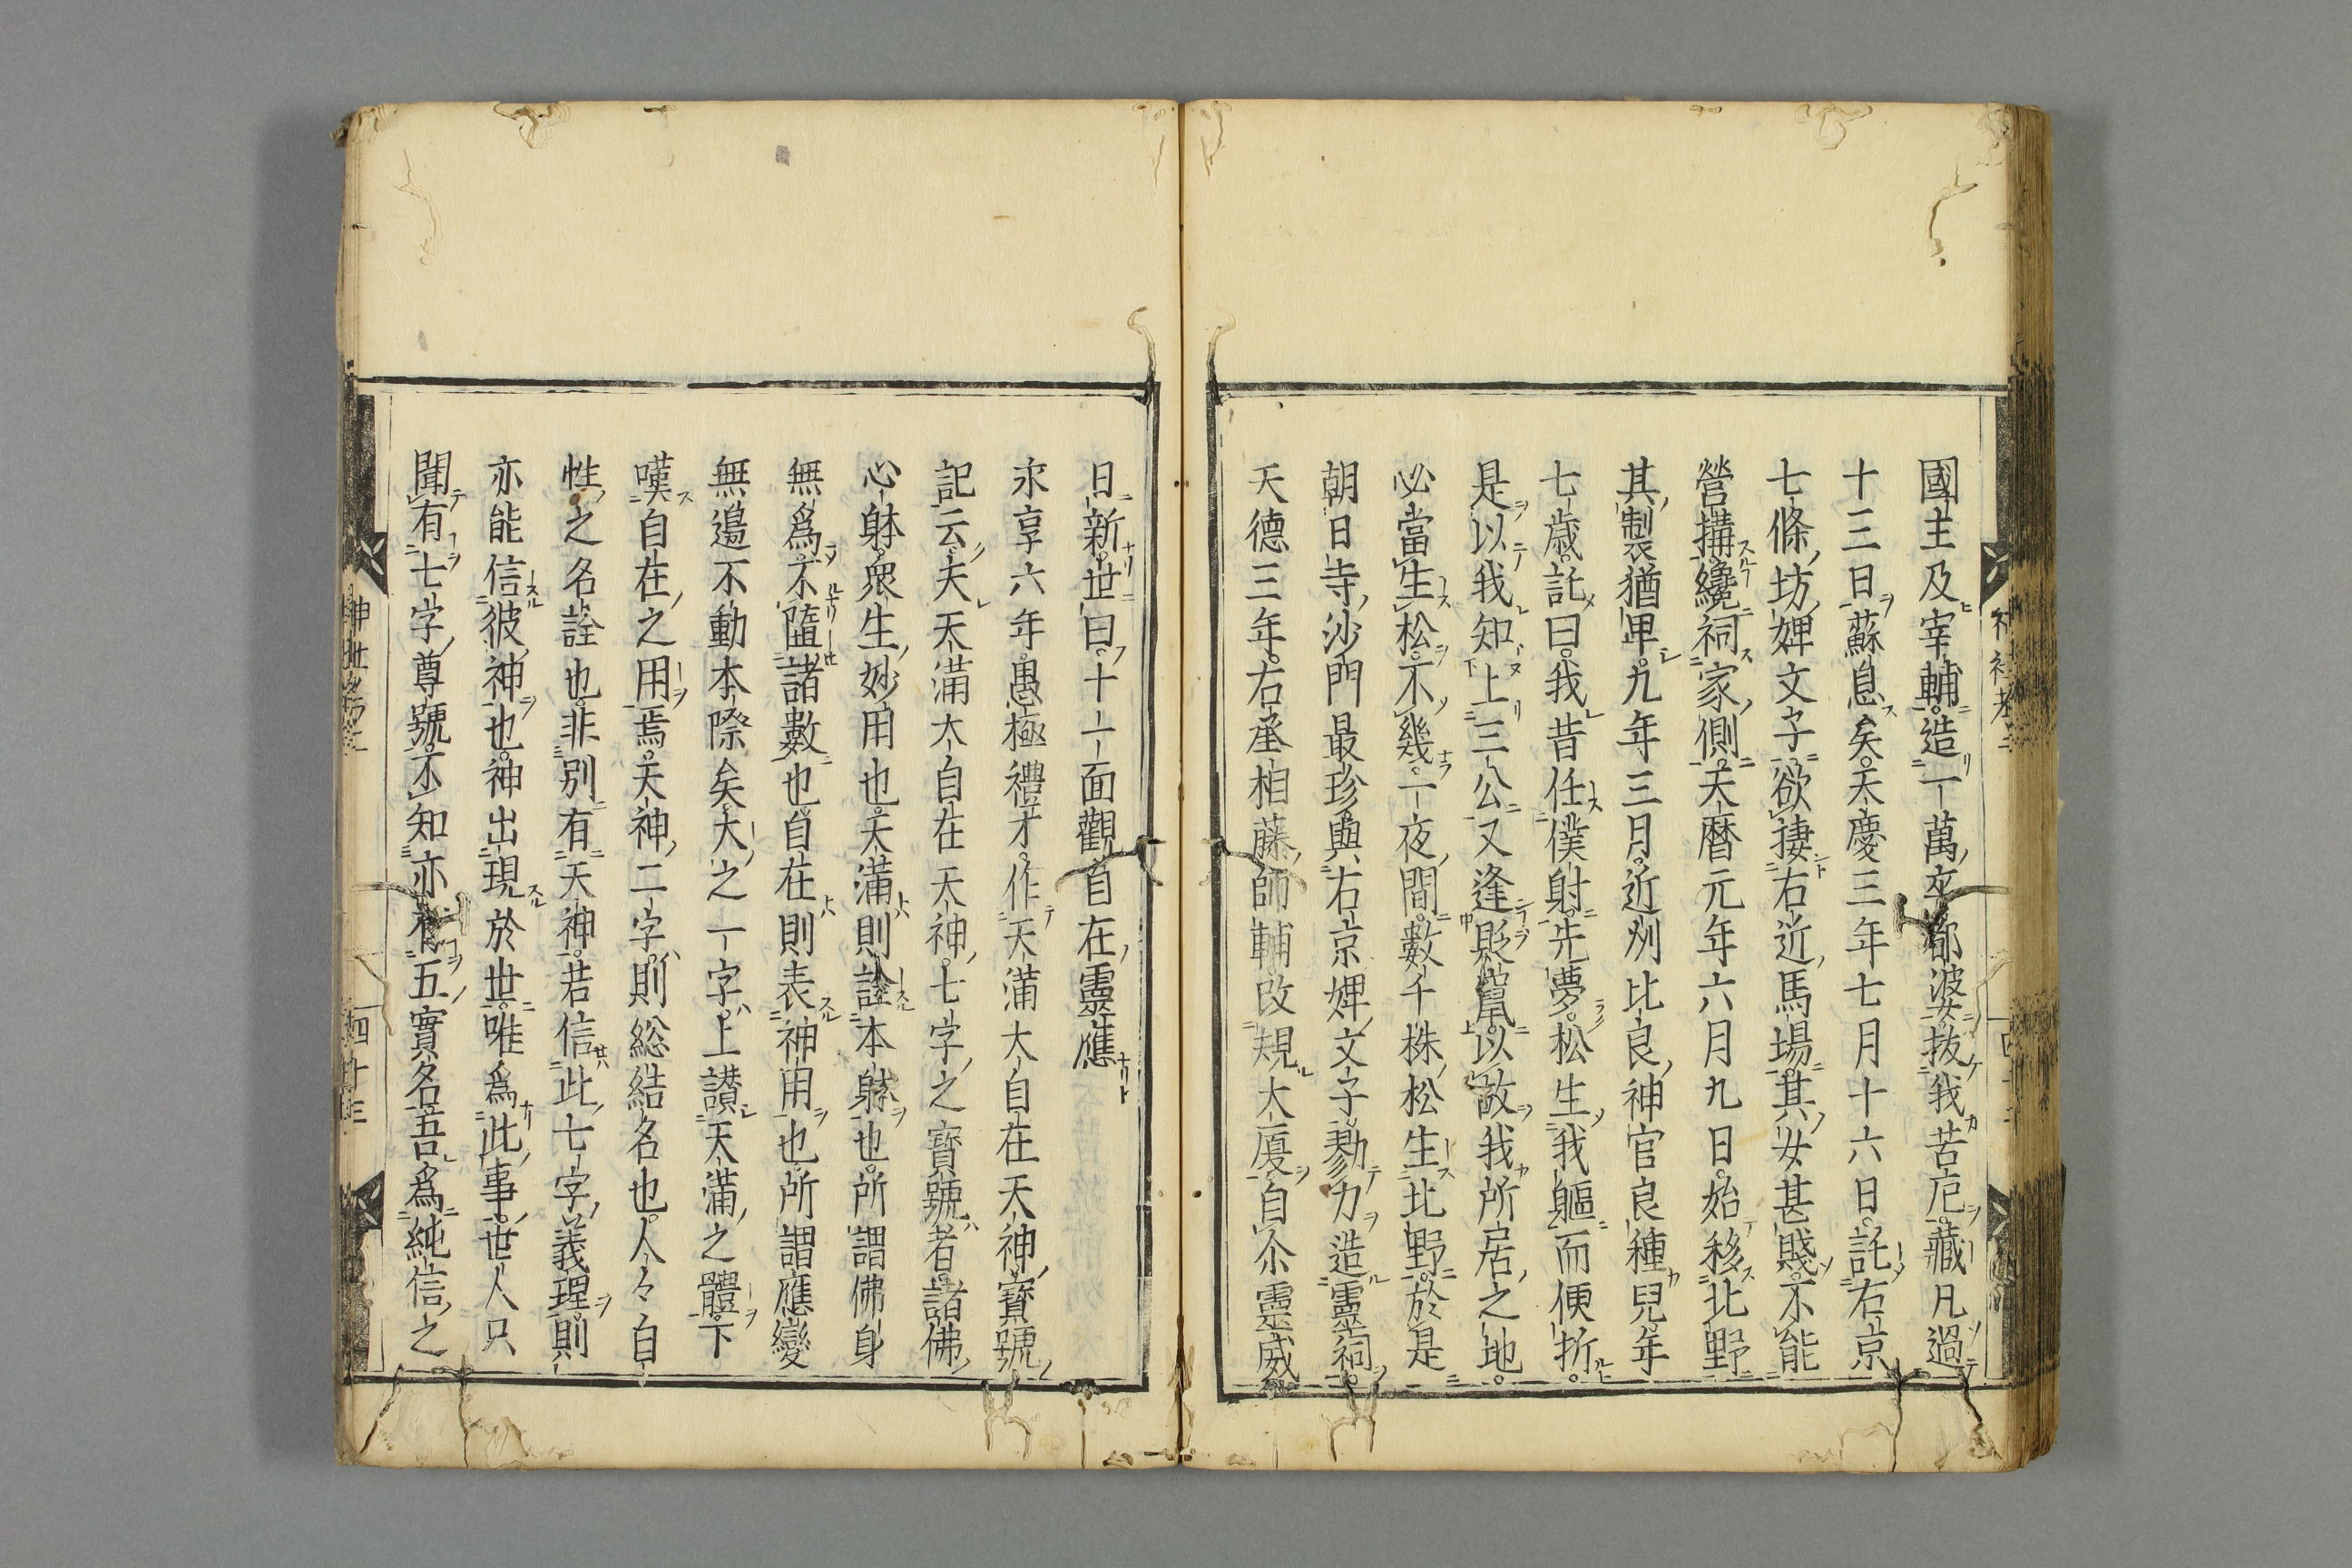 國主及宰輔造一萬卒都婆拔我苦厄藏凡過
十三日蘇息矣天慶三年七月十六日託右京
七條坊婢文子欲捿右近馬場其女甚賤不能
營搆纔祠家側天曆元年六月九日始移北野
其製猶卑九年三月近州比良神官良種兒年
七歲託曰我昔任僕射先夢松生我軀而便折
是以我知上三公又逢貶竄以故我所居之地
必當生松不幾一夜間數千株松生北野於是
朝日寺沙門最珍與右京婢文子勠力造靈祠
天德三年右丞相藤師輔改規大廈自尒靈威
日新世曰十一面觀自在靈應
永享六年愚極禮才作天滿大自在天神寶號
記云夫天滿大自在天神七字之寶號者諸佛
心躰衆生妙用也天滿則詮本躰也所謂佛身
無爲不墮諸數也自在則表神用也所謂應變
無邊不動本際矣大之一字上讃天滿之體下
嘆自在之用焉天神二字則総結名也人々自
性之名詮也非別有天神若信此七字義理則
亦能信彼神也神出現於世唯爲此事世人只
聞有七字尊號不知亦有五實名吾爲純信之